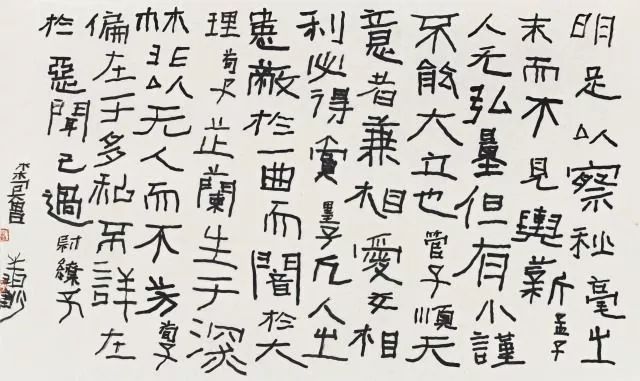 明足以察秋毫之
末而不見輿薪 孟子
人无弘量但有小謹
不能大立也 管子 順天
意者兼相愛交相
利必得賞 墨子 凡人之
患蔽於一曲而闇於大
理 荀子 芷蘭生于深
林非以无人而不芳 荀子
偏在于多私不詳在
於惡聞己過 尉繚子